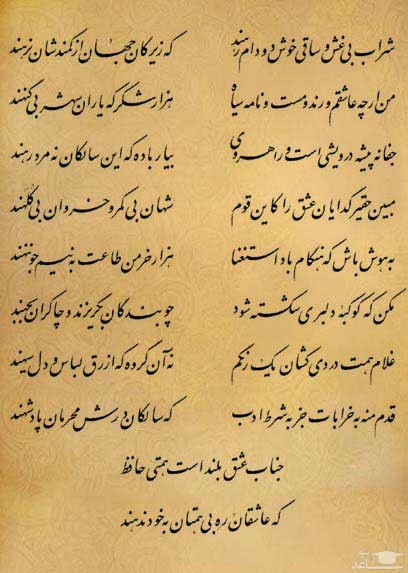 شراب بی غش و ساقی خوش دو دام رهند که زیرکان جهان از کمندشان نرهند
من ارچه عاشقم و رند و مست و نامه سیاه هزار شکر که یاران شهر بی گنهند
جفا نه پیشه درویشی است و راهروی بیار باده که این سالکان نه مرد رهند
مبین حقیر گدایان عشق را کاین قوم شهان بی کمر و خسروان بی کلهند
به هوش باش که هنگام باد استغنا هزار خرمن طاعت به نیم جو ننهند
مکن که کوکبهٔ دلبری شکسته شود چو بندگان بگریزند و چاکران بجهند
غلام همت دردی کشان یک رنگم نه آن گروه که ازرق لباس و دل سیهند
قدم منه به خرابات جز به شرط ادب که سالکان درش محرمان پادشهند
جناب عشق بلند است همتی حافظ
که عاشقان ره بی همتان به خود ندهند